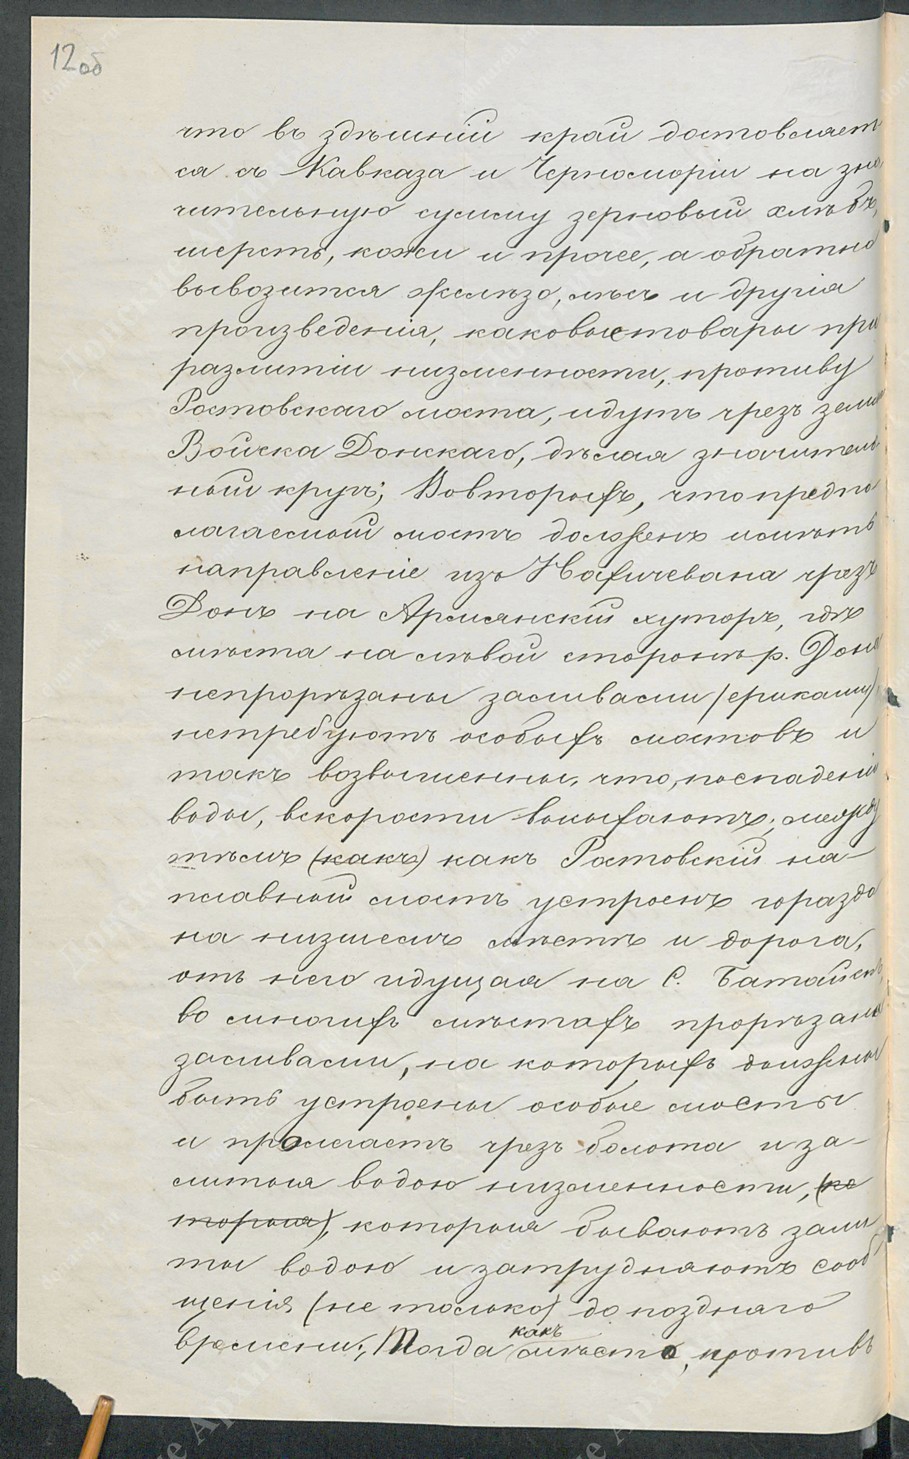 12об
что въ здѣшній край доставляет
ся съ Кавказа и Черноморіи на зна
чительную сумму зерновый хлѣбъ,
шерсть, кожи и прочее, а обратно
вывозится желѣзо, лѣсъ и другія
произведенія, каковые товары при
разлитіи низменности, противу
Ростовскаго моста, идутъ чрезъ земли
Войска Донскаго, дѣлая значитель
ный кругъ; Вовторыхъ, что предпо
лагаемый мостъ долженъ имѣть
направленіе изъ Нахичевана чрезъ
Донъ на Армянскій хуторъ, гдѣ
мѣста на лѣвой сторонѣ р. Дона
непрорѣзаны заливами (ериками)
нетребуютъ особыхъ мостовъ и
такъ возвышенны, что, поспаденіи
воды, вскорости высыхаютъ; между
тѣмъ (какъ) какъ Ростовскій на-
плавной мостъ устроенъ гораздо
на низшемъ мѣстѣ и дорога,
отъ него идущая на С. Батайскъ,
во многихъ мѣстахъ прорѣзана
заливами, на которыхъ должны
быть устроены особые мосты
и пролегаетъ чрезъ болота и за-
литыя водою низменности, (ко
торыя), которыя бываютъ зали
ты водою и затрудняютъ сооб
щенія (не только) до поздняго
времени; Тогда какъ мѣсто, противъ